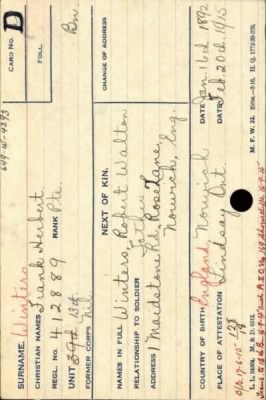 CARD NO. D
FOLL.
649-W-4393
SURNAME. Winters
CHRISTIAN NAMES Frank Herbert
REGL. NO. 412889 RANK Pte.
UNIT 39th Bn.
FORMER CORPS Nil
NEXT OF KIN.
CHANGE OF ADDRESS
NAMES IN FULL Winters, Robert Walton
RELATIONSHIP TO SOLDIER Father
ADDRESS 1 Maidstone Rd., Rose Lane,
Norwich, Eng.
COUNTRY OF BIRTH England, Norwich DATE Jan. 16th 1892
PLACE OF ATTESTATION Lindsay Ont. DATE Feb. 20th 1915
M. F. W. 22.
H. Q. 1772-39-339.